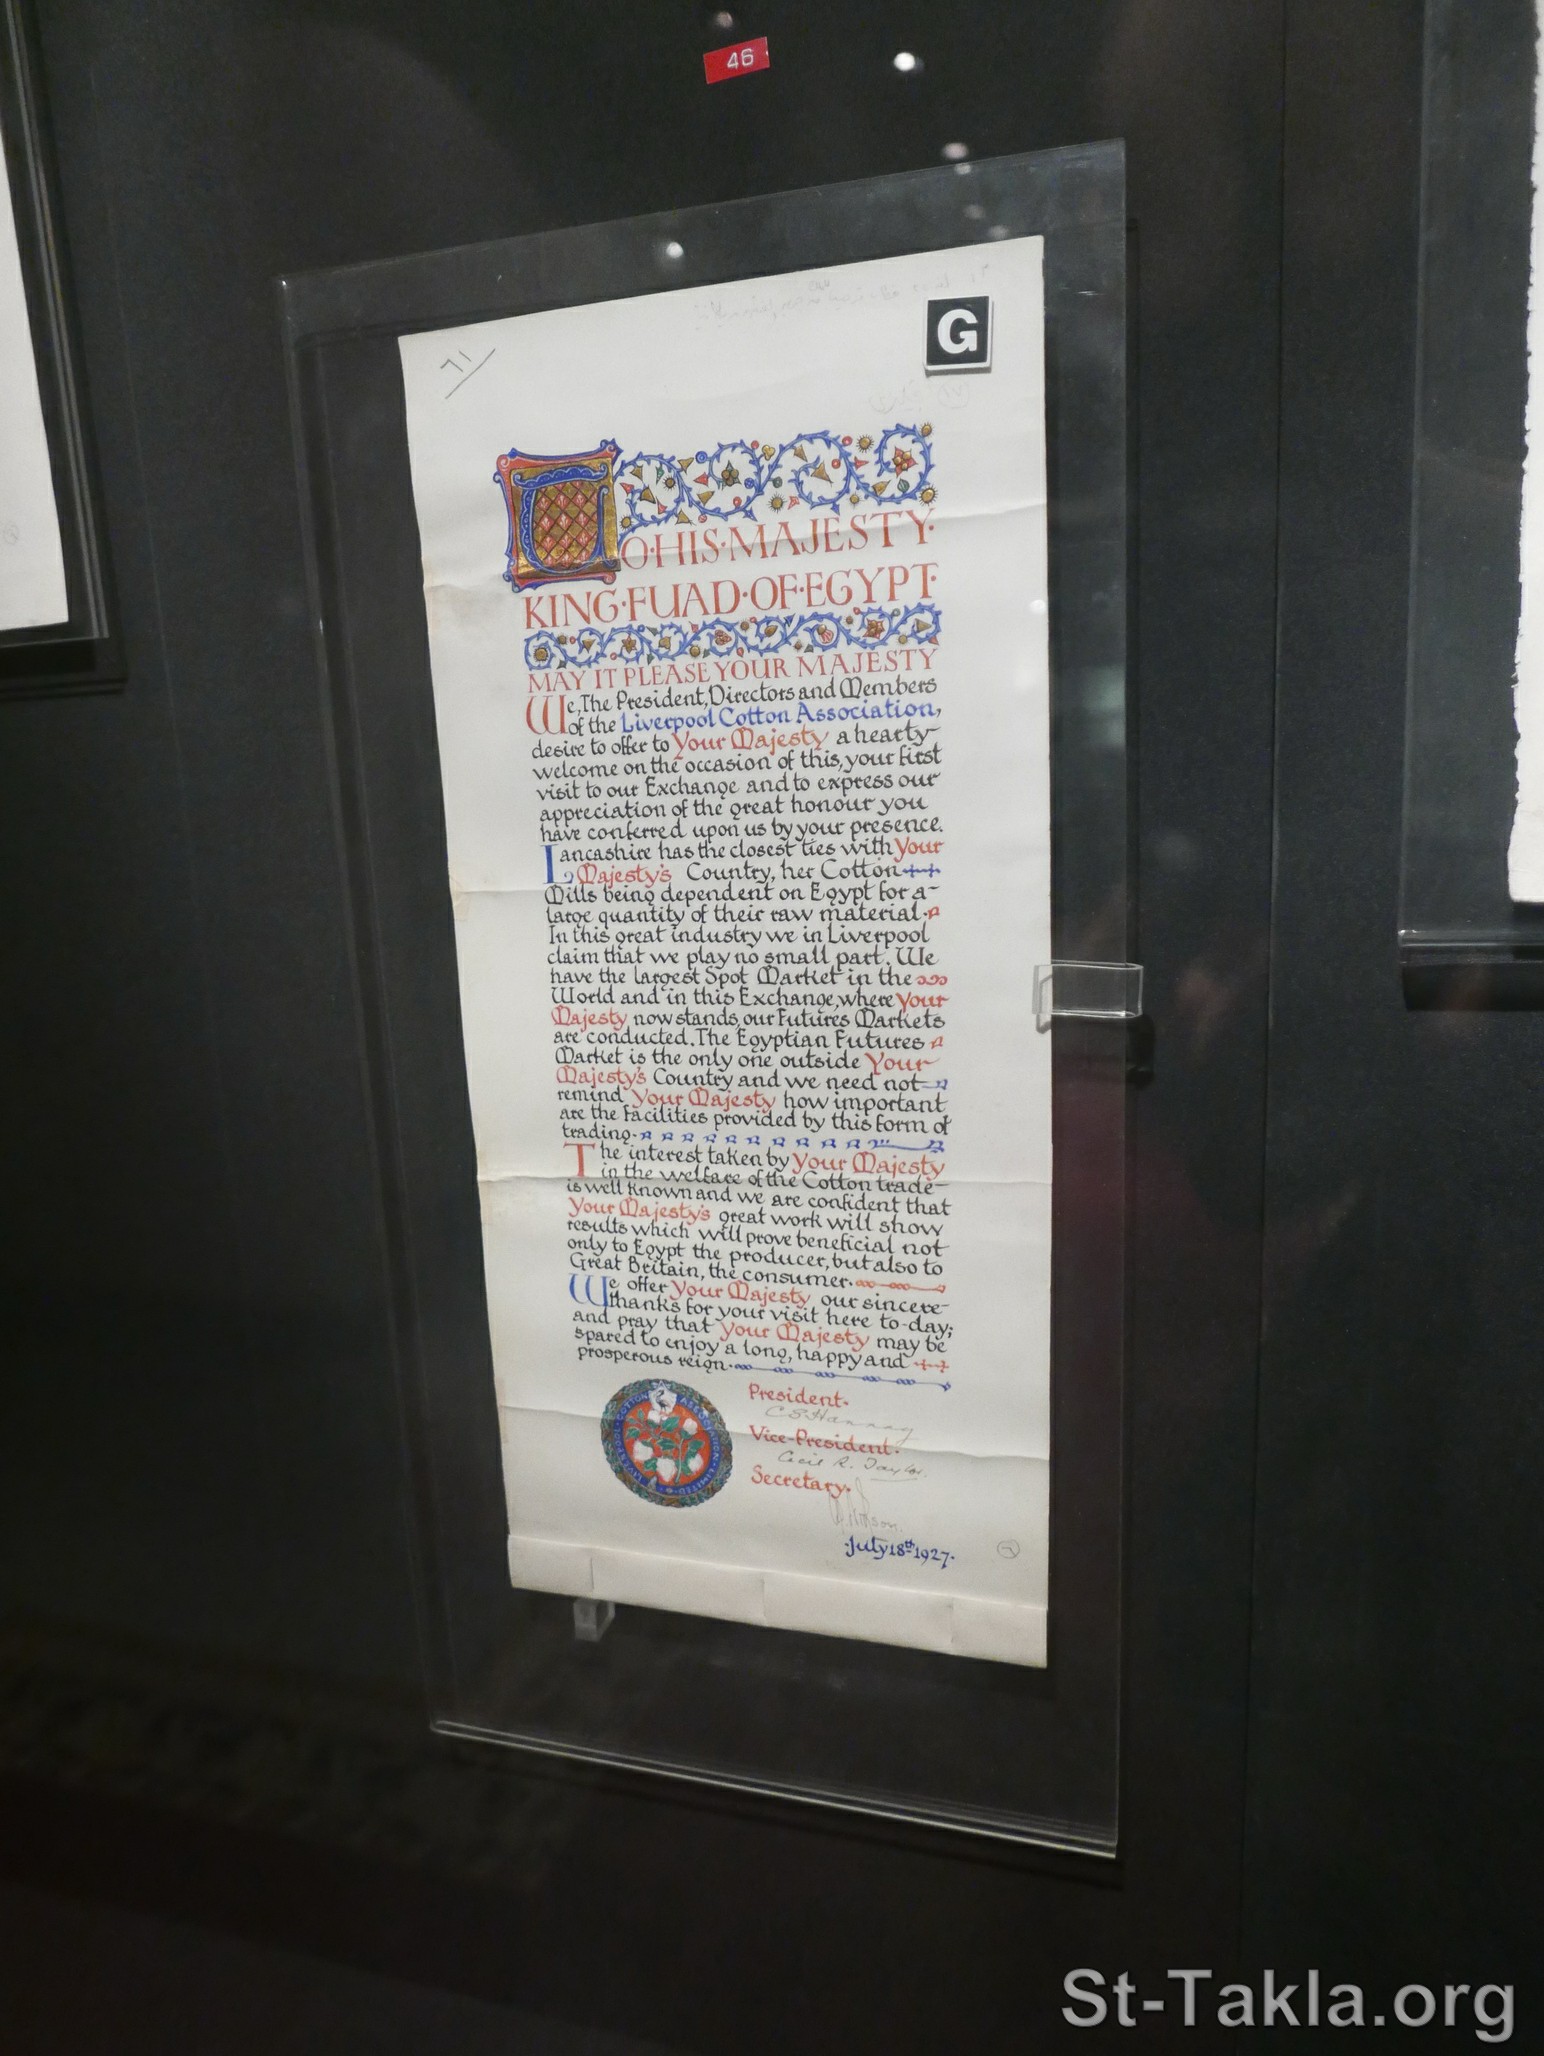 46
G
٦١
TO·HIS·MAJESTY·
KING·FUAD·OF·EGYPT·
MAY IT PLEASE YOUR MAJESTY
We, The President, Directors and Members
of the Liverpool Cotton Association,
desire to offer to Your Majesty a hearty
welcome on the occasion of this, your first
visit to our Exchange and to express our
appreciation of the great honour you
have conferred upon us by your presence.
Lancashire has the closest ties with Your
Majesty's Country, her Cotton
Mills being dependent on Egypt for a
large quantity of their raw material.
In this great industry we in Liverpool
claim that we play no small part. We
have the largest Spot Market in the
World and in this Exchange, where Your
Majesty now stands, our Futures Markets
are conducted. The Egyptian Futures
Market is the only one outside Your
Majesty's Country and we need not
remind Your Majesty how important
are the facilities provided by this form of
trading.
The interest taken by Your Majesty
in the welfare of the Cotton trade
is well known and we are confident that
Your Majesty's great work will show
results which will prove beneficial not
only to Egypt the producer, but also to
Great Britain, the consumer.
We offer Your Majesty our sincere
thanks for your visit here to-day;
and pray that Your Majesty may be
spared to enjoy a long, happy and
prosperous reign.
LIVERPOOL COTTON ASSOCIATION LIMITED
President.
C S Hannay
Vice-President.
Cecil R. Taylor.
Secretary.
·July 18th 1927.
St-Takla.org